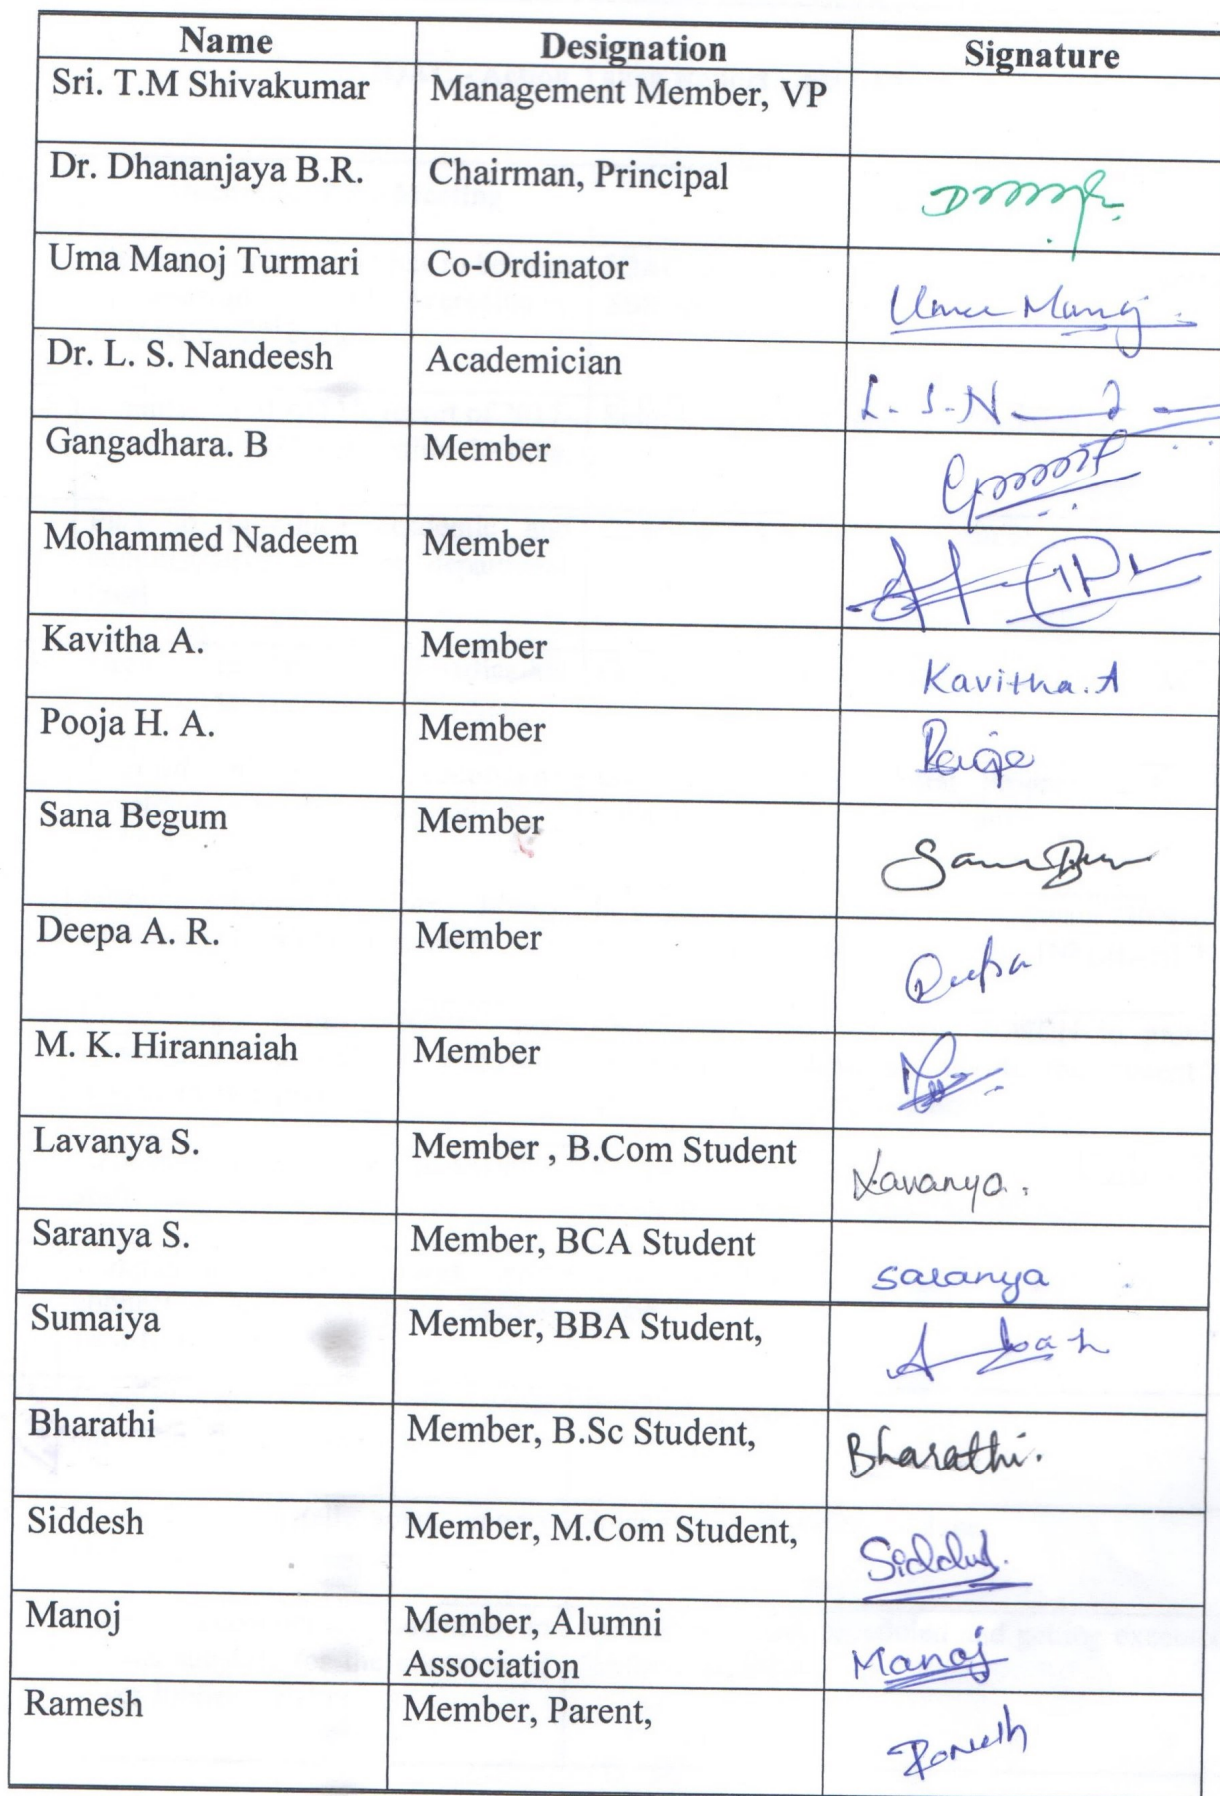 Name Designation Signature
Sri. T.M Shivakumar Management Member, VP
Dr. Dhananjaya B.R. Chairman, Principal
Uma Manoj Turmari Co-Ordinator Uma Manoj.
Dr. L. S. Nandeesh Academician L. S. N
Gangadhara. B Member
Mohammed Nadeem Member
Kavitha A. Member Kavitha. A
Pooja H. A. Member Pooja
Sana Begum Member
Deepa A. R. Member Deepa
M. K. Hirannaiah Member
Lavanya S. Member , B.Com Student Lavanya.
Saranya S. Member, BCA Student Saranya
Sumaiya Member, BBA Student,
Bharathi Member, B.Sc Student, Bharathi.
Siddesh Member, M.Com Student, Siddesh.
Manoj Member, Alumni
Association Manoj
Ramesh Member, Parent, Ramesh